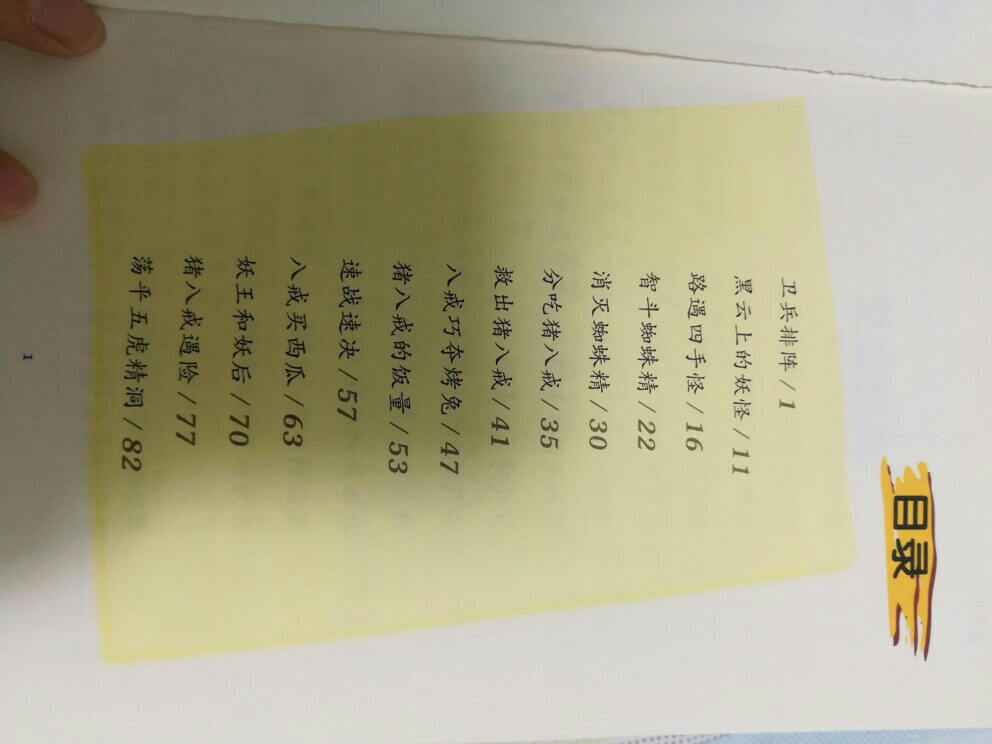 目录
卫兵排阵/1
黑云上的妖怪/11
路遇四手怪/16
智斗蜘蛛精/22
消灭蜘蛛精/30
分吃猪八戒/35
救出猪八戒/41
八戒巧夺烤兔/47
猪八戒的饭量/53
速战速决/57
八戒买西瓜/63
妖王和妖后/70
猪八戒遇险/77
荡平五虎精洞/82
1